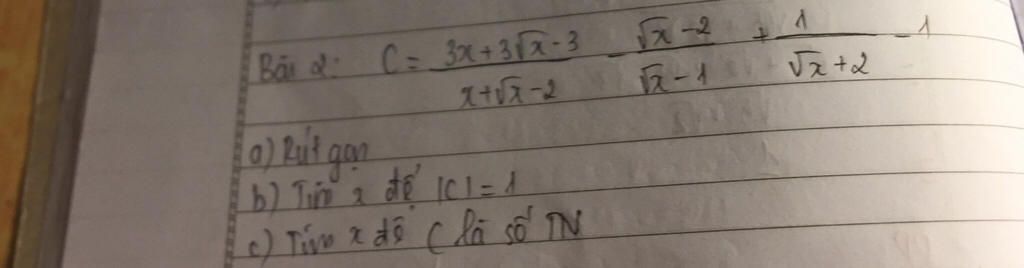 Bài 2: C = \frac{3x+3\sqrt{x}-3}{x+\sqrt{x}-2} - \frac{\sqrt{x}-2}{\sqrt{x}-1} + \frac{1}{\sqrt{x}+2} - 1
a) Rút gọn
b) Tìm x để |C| = 1
c) Tìm x để C là số TN